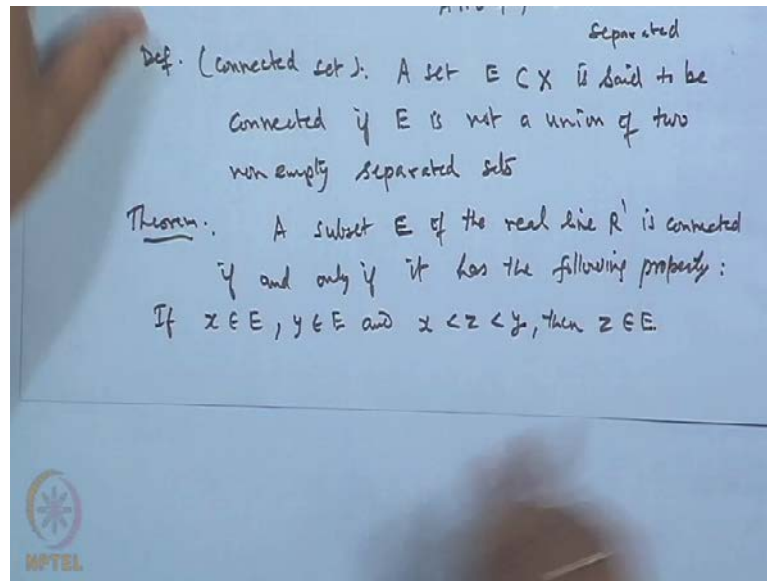 separated
Def. (Connected set): A set E ⊂ X is said to be
connected if E is not a union of two
non empty separated sets
Theorem: A subset E of the real line R¹ is connected
if and only if it has the following property:
If x ∈ E, y ∈ E and x < z < y, then z ∈ E.
NPTEL